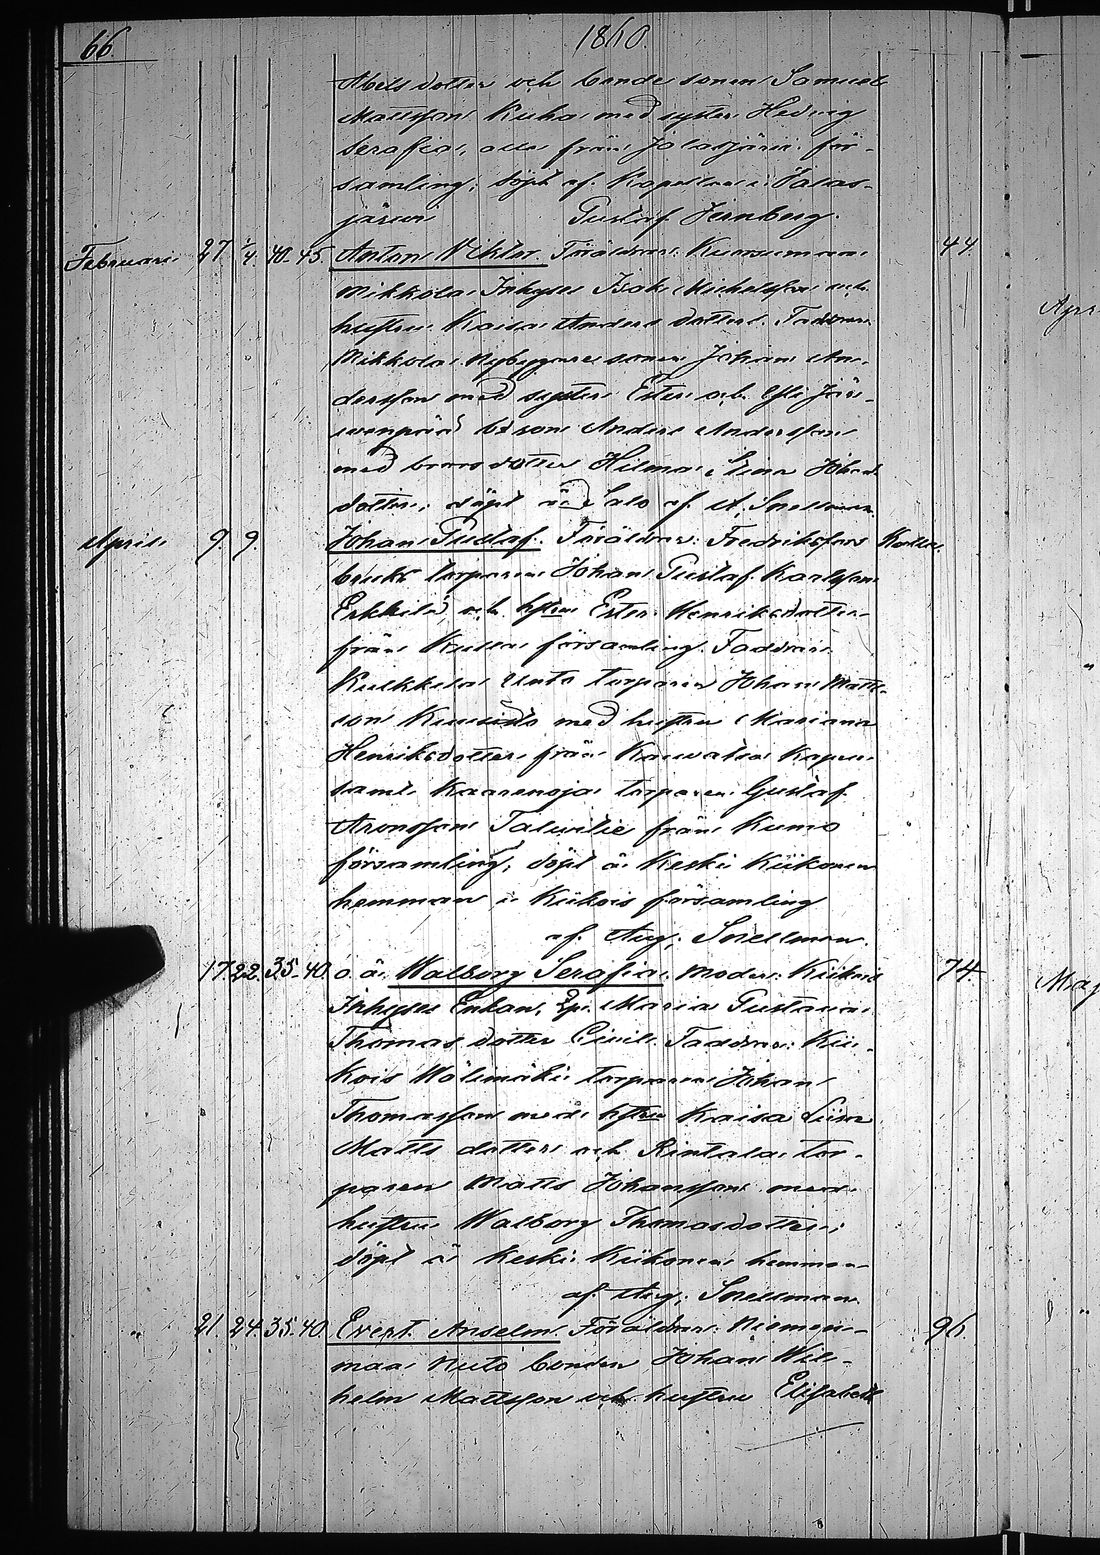 66. 1860.
Abels dotter och bonde sonen Samuel
Mattsson Kuha med syster Hedvig
Serafia, alla från Jalasjärvi för-
samling; döpt af Kapellan i Jalas-
järvi Gustaf
Februari 27. 1/4. 40-45. Anton Viktor. Föräldrar:
Mikkola Inhyses Isak Michelsson och
hustru Kaisa Anders dotter. Faddrar:
Mikkola Nybyggare sonen Johan An-
dersson med syster Ester och
son Anders Andersson
med brorsdotter Hilma Stina Johans
dotter; döpt å Salo af A. Snellman. 44.
April 9. 9. Johan Gustaf. Föräldrar: Fredriksfors
bruks torparen Johan Gustaf Karlsson
Erkkilä och hstrn Ester Henriksdotter
från församling. Faddrar:
Kulkkila Unto torparen Johan Matts-
son med hustru Mariana
Henriksdotter från Kauvatsa Kapell
samt Kaarenoja torparen Gustaf
Aronsson från Kumo
församling; döpt å Keski Kiikonen
hemman i Kiikois församling
af Aug. Snellman.
17. 22. 35-40. o. ä. Walborg Serafia. Moder: Kiikois
Inhyses Enkan, Maria Gustava
Thomas dotter Faddrar: Kii-
kois Wälimäki torparen Johan
Thomasson med hstrn Kaisa Liisa
Matts dotter och Rintala tor-
paren Matts Johansson med
hustru Walborg Thomasdotter;
döpt å Keski Kiikonen hemman
af Aug. Snellman. 74.
" 21. 24. 35-40. Evert Anselm. Föräldrar: Niemen-
maa Nuto bonden Johan Wil-
helm Mattsson och hustru Elisabeth 96.